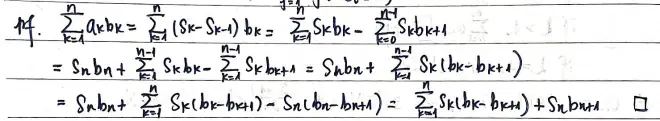 14. $\sum_{k=1}^{n} a_k b_k = \sum_{k=1}^{n} (S_k - S_{k-1}) b_k = \sum_{k=1}^{n} S_k b_k - \sum_{k=0}^{n-1} S_k b_{k+1}$
$= S_n b_n + \sum_{k=1}^{n-1} S_k b_k - \sum_{k=1}^{n-1} S_k b_{k+1} = S_n b_n + \sum_{k=1}^{n-1} S_k (b_k - b_{k+1})$
$= S_n b_n + \sum_{k=1}^{n} S_k (b_k - b_{k+1}) - S_n (b_n - b_{n+1}) = \sum_{k=1}^{n} S_k (b_k - b_{k+1}) + S_n b_{n+1} \quad \square$